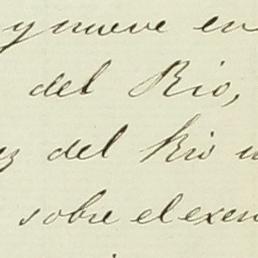 y nueve en
del Rio,
ez del Rio u
sobre el exen